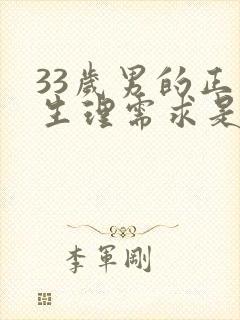 33歲男的正
生理需求是
李軍剛